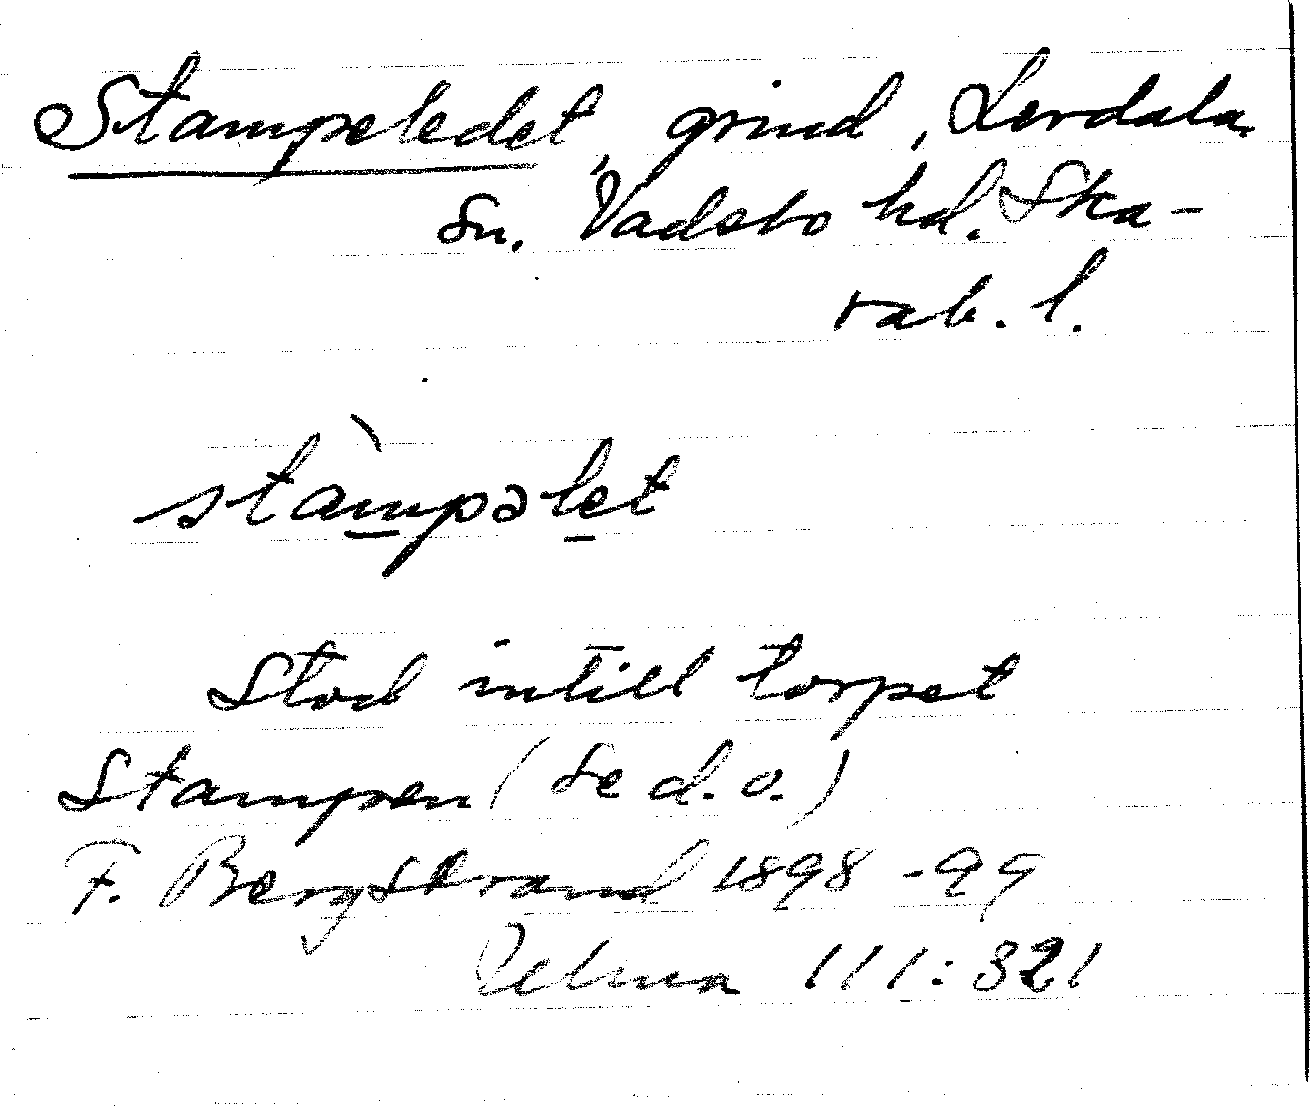 Stampeledet, grind, Lerdala
sn. Vadsbo hd. Ska-
rab. l.
stàmpəlet
Stod intill torpet
Stampen (se d. o.)
F. Bergstrand 1898-99
Velma 111:321